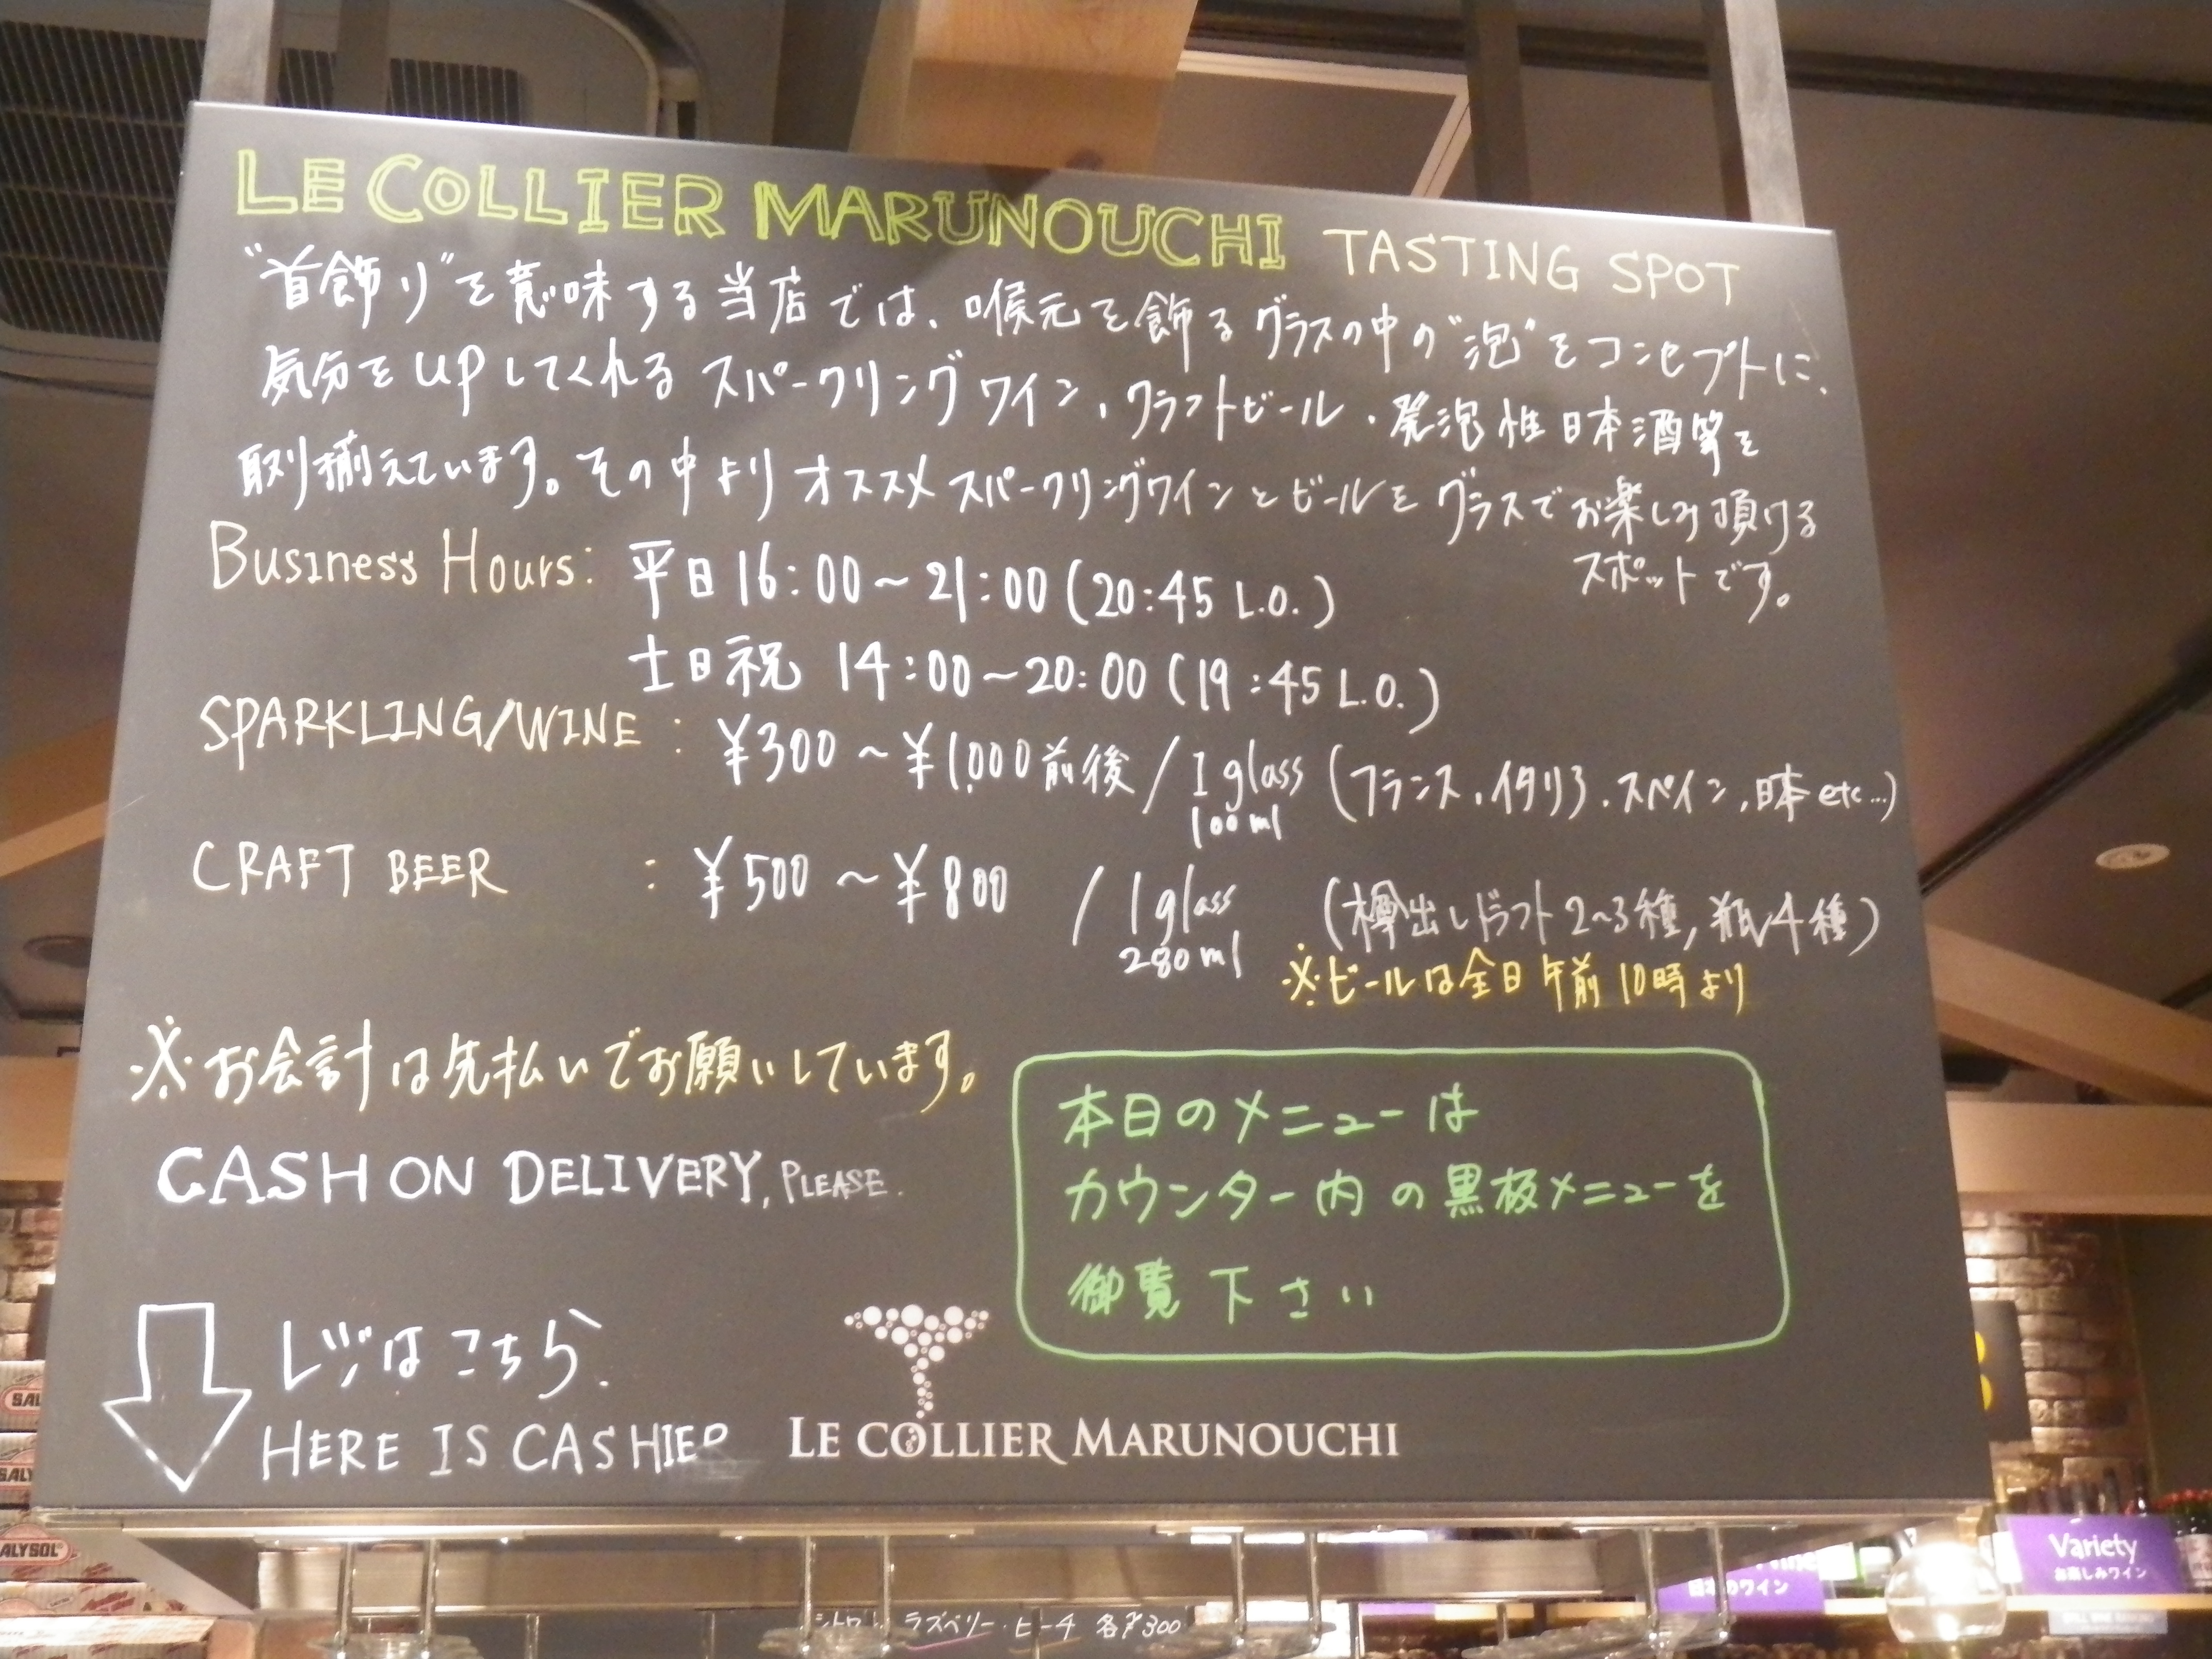 LE COLLIER MARUNOUCHI TASTING SPOT
"首飾り"を意味する当店では、喉元を飾るグラスの中の"泡"をコンセプトに、
気分をupしてくれるスパークリングワイン、クラフトビール・発泡性日本酒等を
取り揃えています。その中よりオススメスパークリングワインとビールをグラスでお楽しみ頂ける
スポットです。
Business Hours: 平日16:00~21:00(20:45 L.O.)
土日祝 14:00~20:00(19:45 L.O.)
SPARKLING/WINE : ¥300~¥1,000前後/1glass (フランス、イタリア、スペイン、日本etc...)
100ml
CRAFT BEER : ¥500~¥800 /1glass (樽出しドラフト2~3種,瓶4種)
280ml
※ビールは全日午前10時より
※お会計は先払いでお願いしています。
CASH ON DELIVERY, PLEASE.
本日のメニューは
カウンター内の黒板メニューを
御覧下さい
レジはこちら.
HERE IS CASHIER
LE COLLIER MARUNOUCHI
SALY
ALYSOL
Variety
お楽しみワイン
日本のワイン
ラズベリー・ピーチ 各¥300